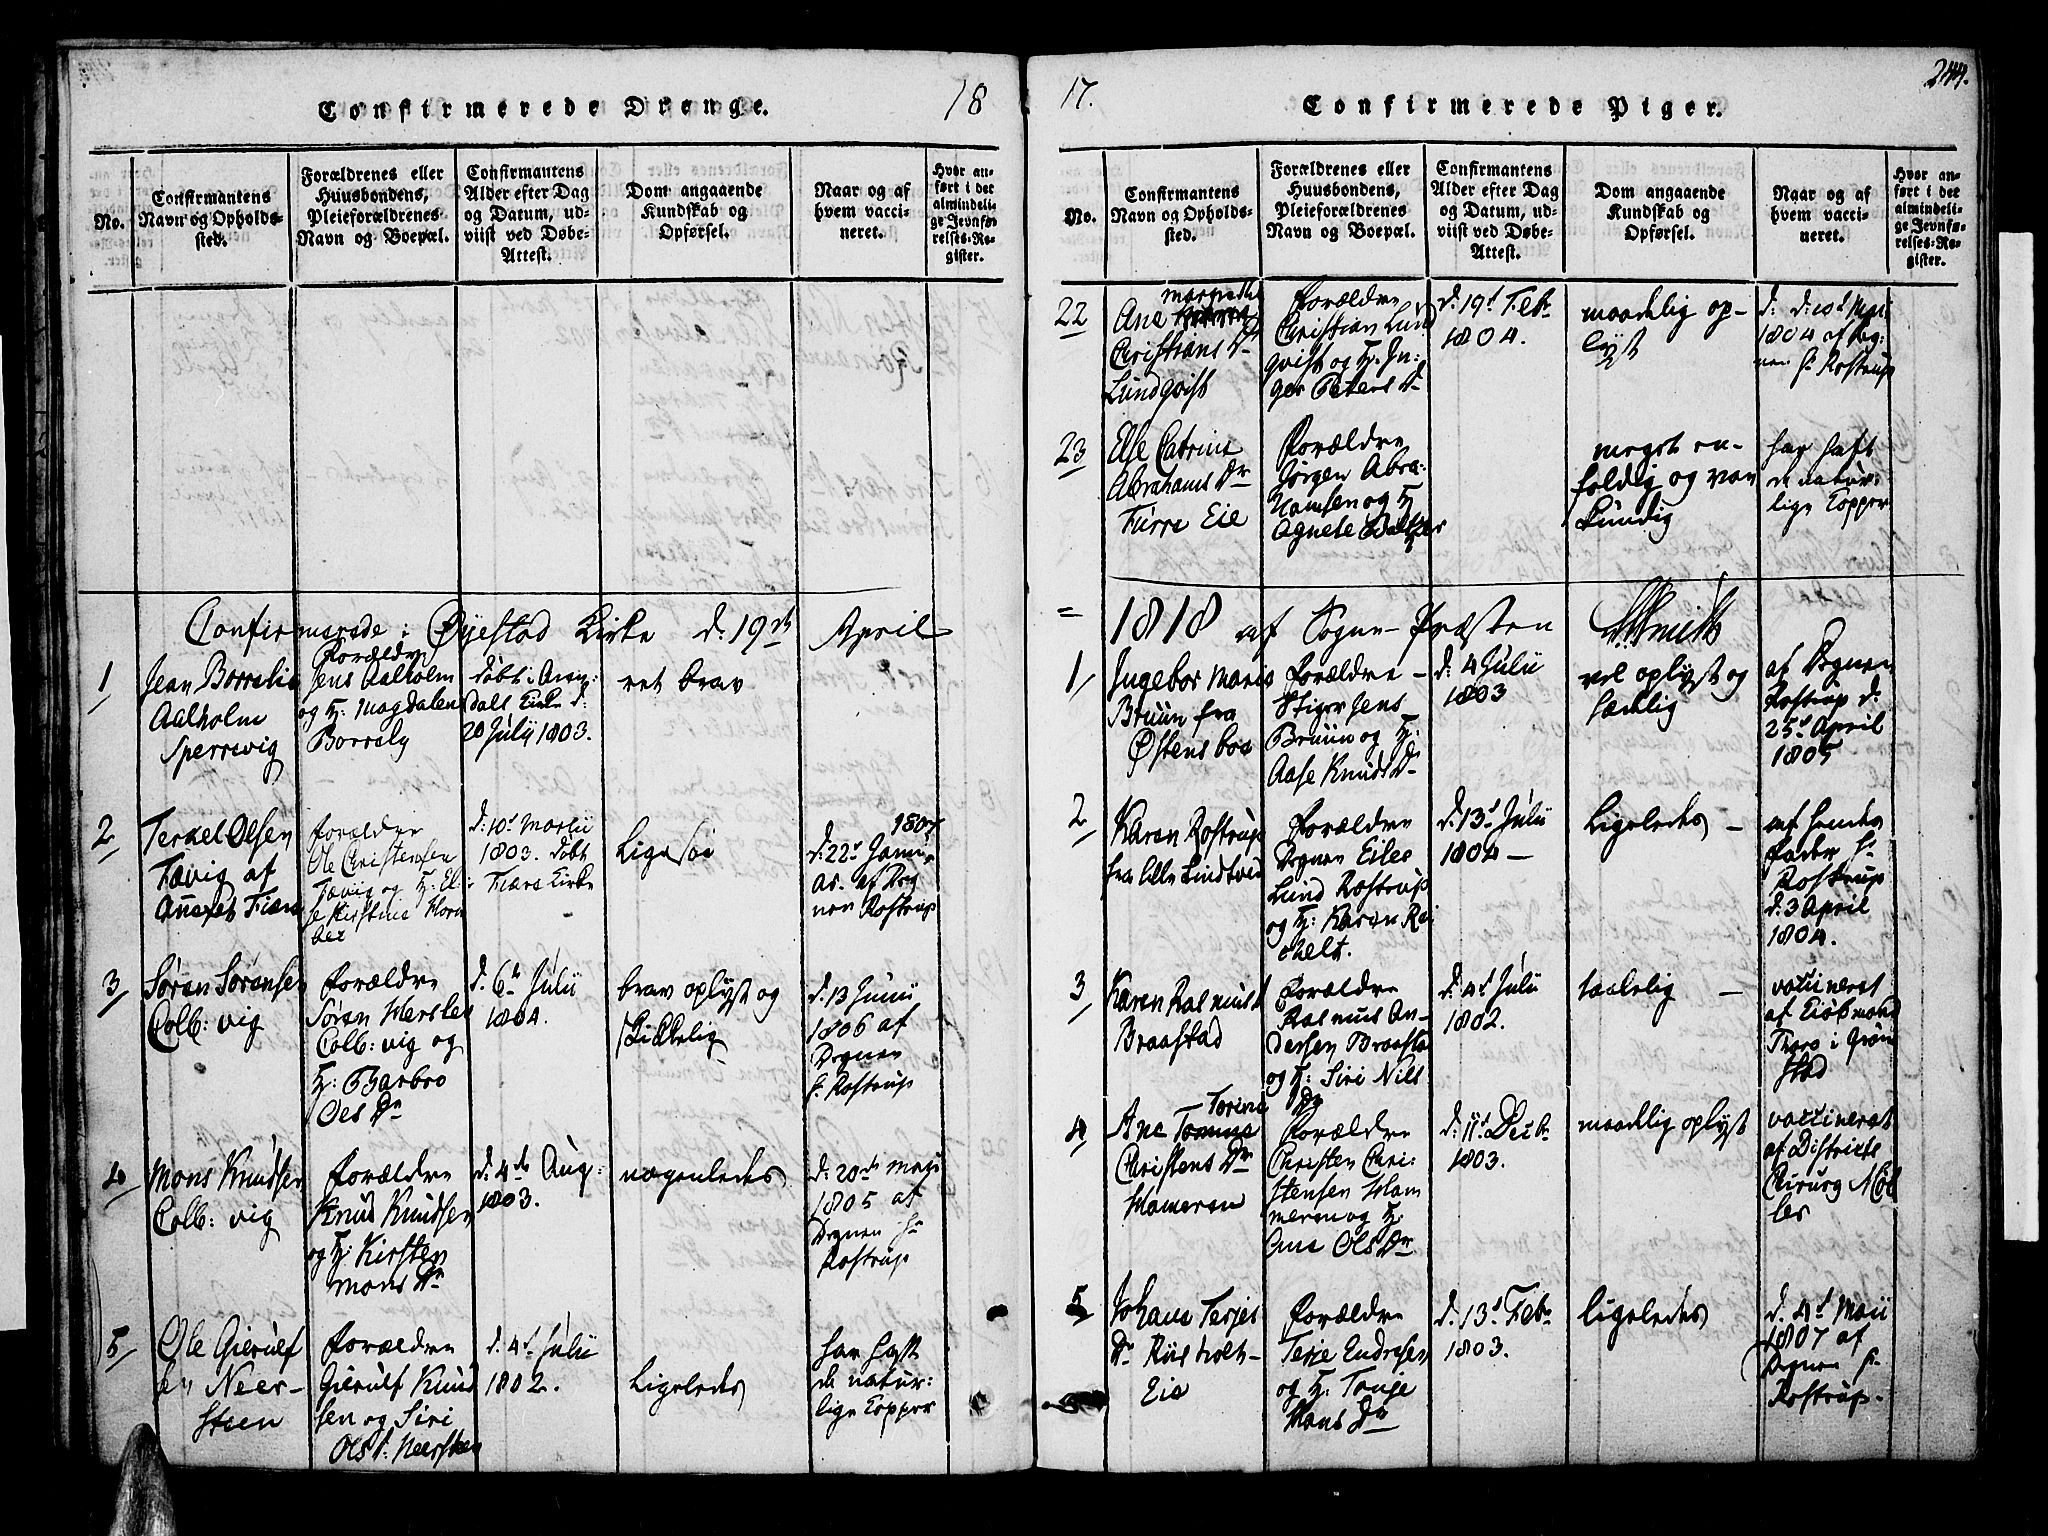 Confirmerede Drenge.
18
No.
Confirmantens
Navn og Opholds-
sted.
Forældrenes eller
Huusbondens,
Pleieforældrenes
Navn og Boepæl.
Confirmantens
Alder efter Dag
og Datum, ud-
viist ved Døbe-
Attest.
Dom angaaende
Kundskab og
Opførsel.
Naar og af
hvem vacci-
neret.
Hvor an-
ført i det
almindeli-
ge Jevnfø-
relses-Re-
gister.
Confirmerede i Øyestad Kirke d: 19de April
1
Jean Borrelie
Aalholm
Sperrevig
Forældre
Jens Aalholm
og H: Magdalen
Borrely
døbt i Aren-
dals Kirke d:
20 July 1803.
ret brav
2
Terkel Olsen
Fævig af
Annexet Fiære
Forældre
Ole Christensen
Fævig og H: El-
se Kirstine Horn
bec
d: 10d Martii
1803. døbt
Fiære Kirke
Ligesaa
1807
d: 22d Janu-
ar. af Deg
nen Rostrup
3
Søren Sørensen
Colb: vig
Forældre
Søren Herslev
Colb: vig og
H: Barbro
Oles Dr
d. 6te Julii
1804.
brav oplyst og
skikkelig
d. 13 Junii
1806 af
Degnen
Hr Rostrup
4
Mons Knudsen
Colb: vig
Forældre
Knud Knudsen
og H: Kirsten
Mons Dr
d: 4de Aug:
1803.
nogenledes
d: 20de Maji
1805 af
Degnen Hr
Rostrup
5
Ole Gierulf
sen Neer-
steen
Forældre
Gierulf Knud
sen og Siri
Ols d: Neersteen
d. 4d Julii
1802.
Ligeledes
har haft
de natur:
lige Kopper
17.
Confirmerede Piger.
244.
No.
Confirmantens
Navn og Opholds-
sted.
Forældrenes eller
Huusbondens,
Pleieforældrenes
Navn og Boepæl.
Confirmantens
Alder efter Dag
og Datum, ud-
viist ved Døbe-
Attest.
Dom angaaende
Kundskab og
Opførsel.
Naar og af
hvem vacci-
neret.
Hvor an-
ført i det
almindeli-
ge Jevnfø-
relses-Re-
gister.
22
Margrethe
Ane
Christians Dr
Lundqvist
Forældre
Christian Lund
qvist og H. In:
ger Peters Dr
d: 19d Febr
1804.
maadelig op-
lyst
d: 10d Maii
1804 af Deg:
nen Hr Rostrup
23
Else Catrine
Abrahams Dr
Furre Eie
Forældre
Jørgen Abra:
hamsen og H
Agnete Baltzer
meget en-
foldig og van
kundig
har haft
de natur:
lige Kopper
= 1818 af Sogne-Præsten
1
Ingebor Marie
Bruun fra
Østensboe
Forældre -
Stiger Jens
Bruun og H:
Aase Knuds Dr
d: 4 Julii
1803
vel oplyst og
sædelig
af Degnen
Rostrup d:
25d April
1805
2
Karen Rostrup
fra lille Lindtved
Forældre
Degnen Eiler
Lund Rostrup
og H: Karen Rei
chelt.
d: 13d Julii
1804 -
Ligeledes -
af hendes
Fader Hr
Rostrup
d. 3 April
1804.
3
Karen Rasmusd
Braastad
Forældre
Rasmus An-
dersen Braastad
og H: Siri Nils
Dr
d: 4d Julii
1802.
taalelig -
vaccineret
af Eiebmond
Thoro i Grøm
stad
4
Torine
Ane
Christens Dr
Hameren
Forældre
Christen Chri-
stensen Ham
meren og H:
Anne Ols Dr
d: 11d Decbr
1803.
maadelig oplyst
vaccineret
af Districts
Chirurg Møl
ler
5
Johane Terjes
Dr Riisholt-
Eie
Forældre
Terje Endresen
og H: Tonje
Hans Dr
d: 13d Febr
1803.
ligeledes
d. 4d Maii
1807 af
Degnen Hr
Rostrup.